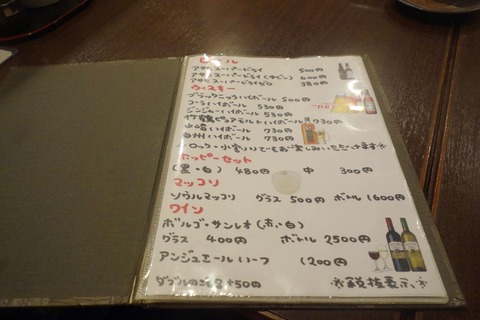 ビール
アサヒスーパードライ 500円
アサヒスーパードライ(中ビン) 600円
アサヒスーパードライゼロ 380円
ウィスキー
ブラックニッカハイボール 500円
コークハイボール 530円
ジンジャーハイボール 530円
竹鶴ピュアモルトハイボール 730円
山崎ハイボール 730円
白州ハイボール 730円
ロック・水割りでもお楽しみいただけます※
ホッピーセット
(黒・白) 480円 中 300円
マッコリ
ソウルマッコリ グラス 500円 ボトル 1600円
ワイン
ボルゴ・サンレオ(赤・白)
グラス 400円 ボトル 2500円
アンジュエール ハーフ 1200円
ダブルの +50円 ※税抜表示※